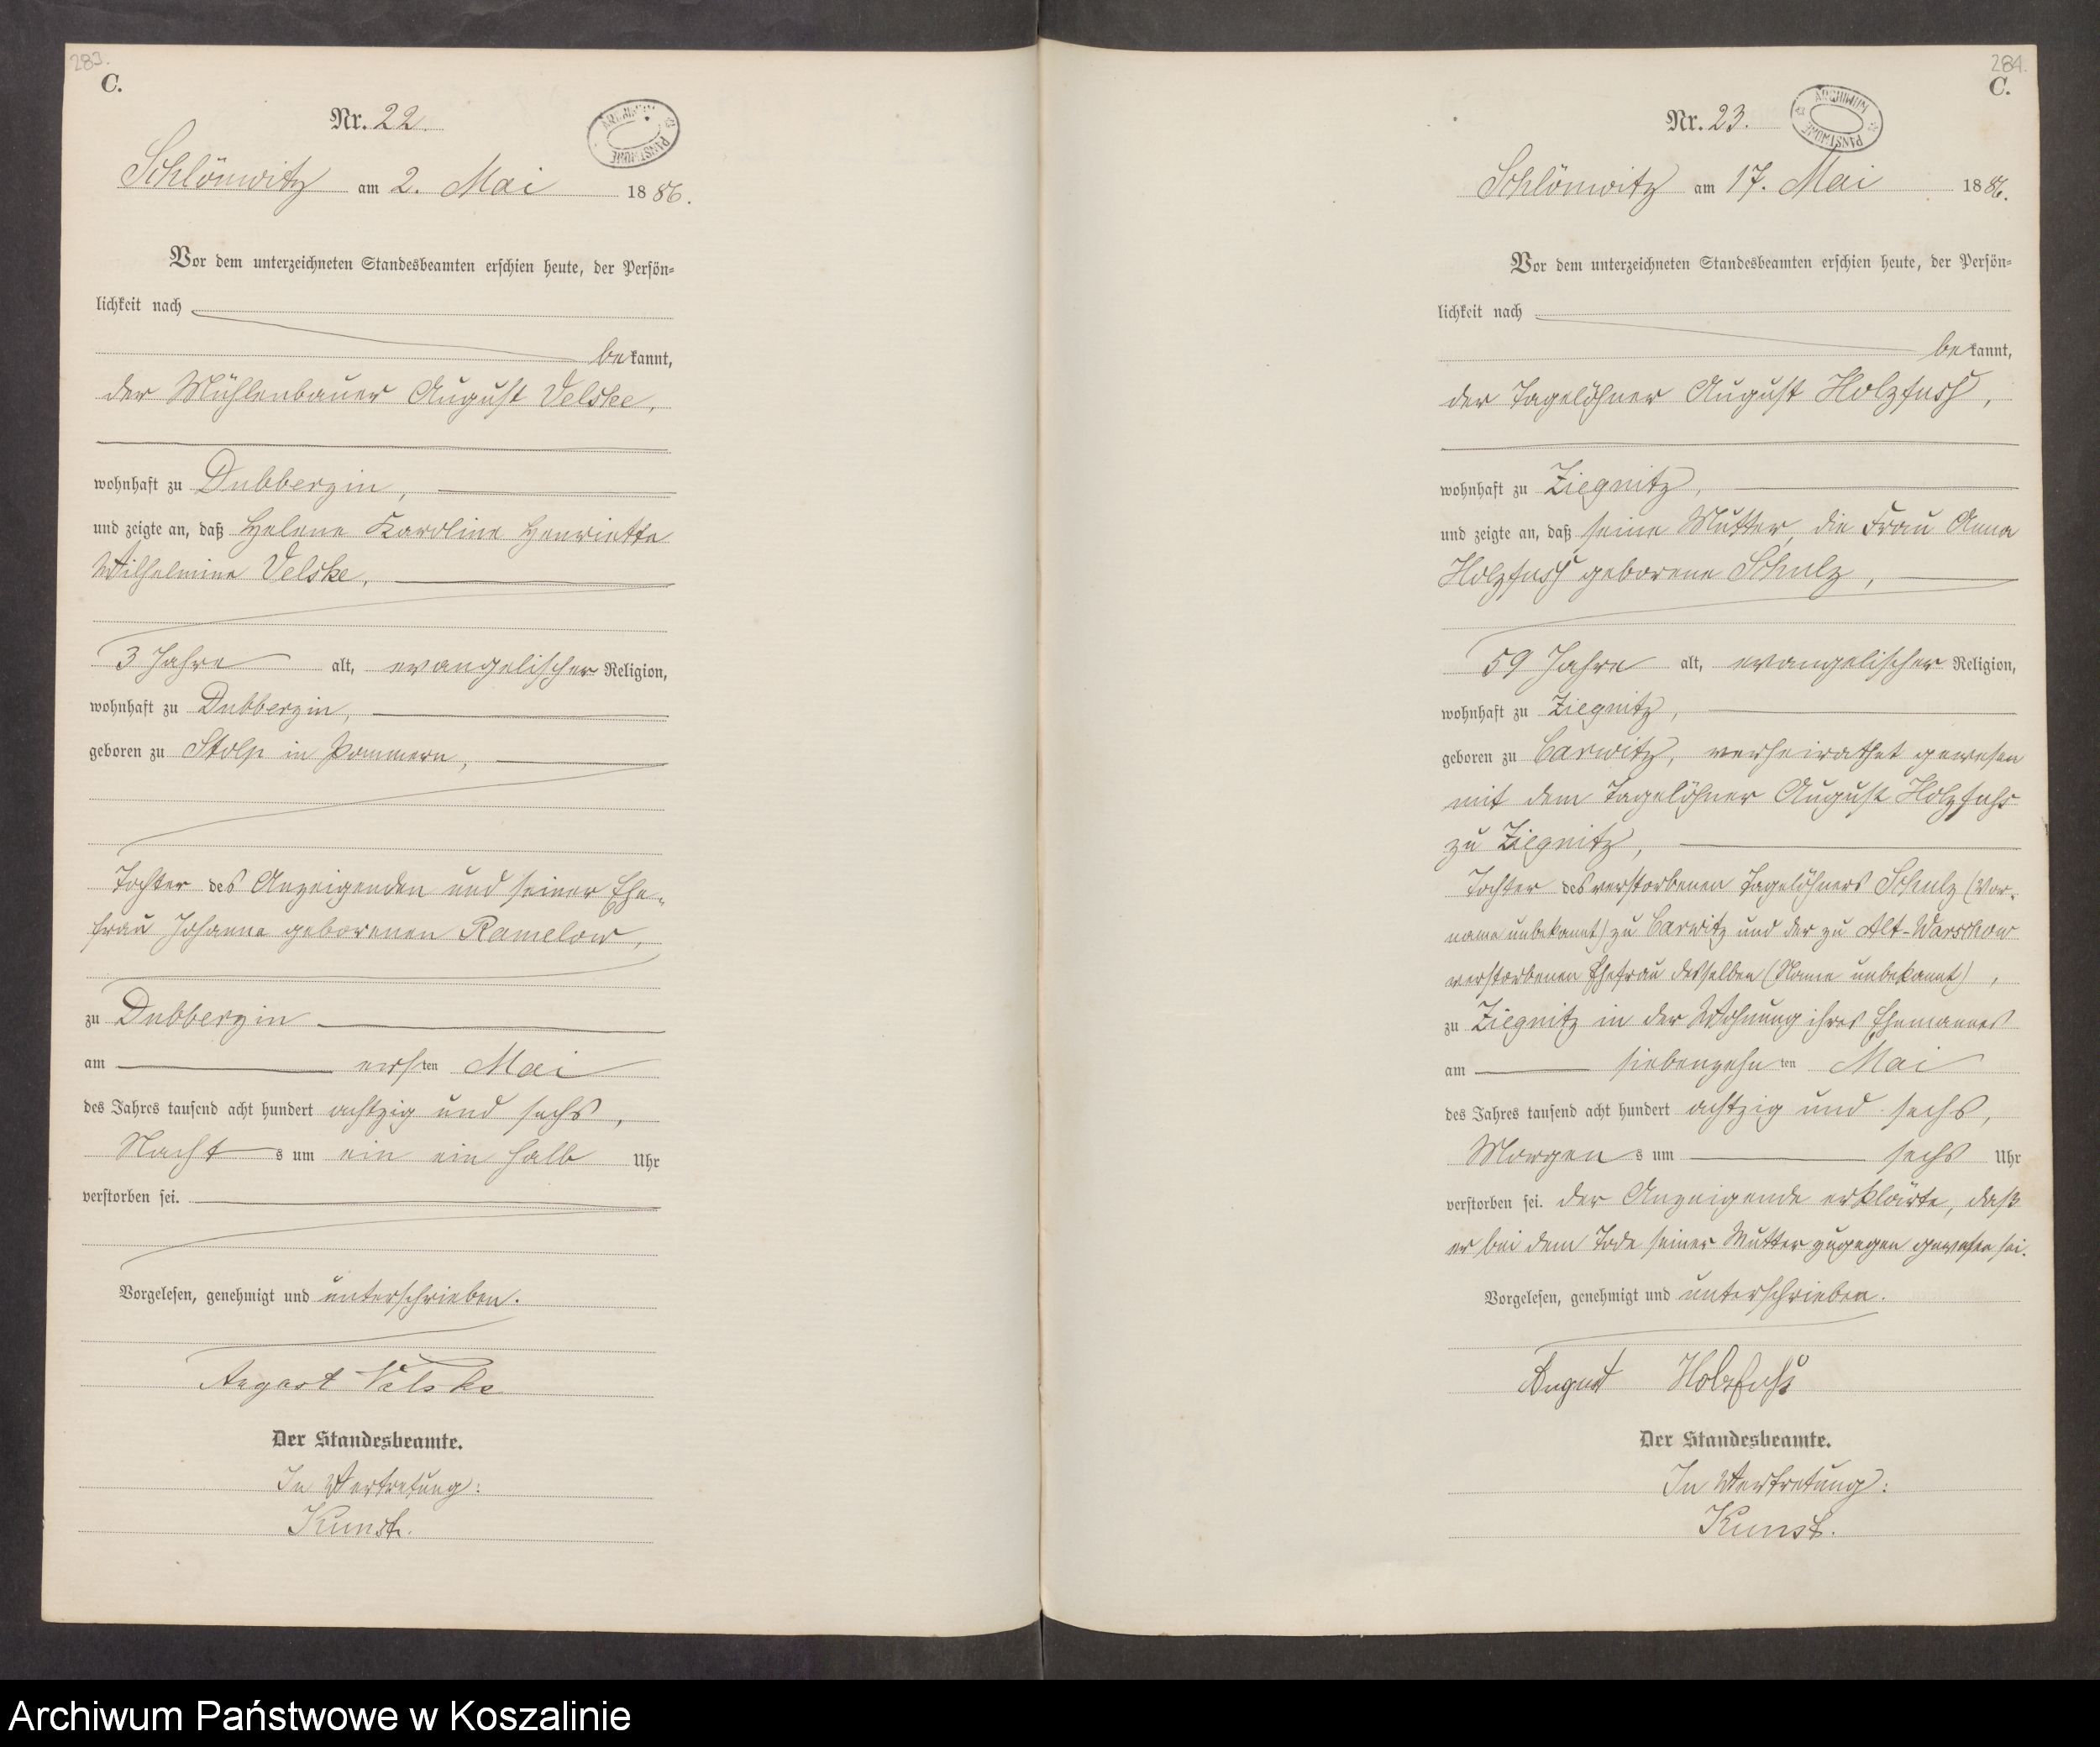 283.
C.
Nr. 22.
ARCHIWUM PAŃSTWOWE
Schlönwitz am 2. Mai 1886.
Vor dem unterzeichneten Standesbeamten erschien heute, der Persön=
lichkeit nach
bekannt,
der Mühlenbauer August Velske,
wohnhaft zu Dubberzin,
und zeigte an, daß Helene Karoline Henriette
Wilhelmine Velske,
3 Jahre alt, evangelischer Religion,
wohnhaft zu Dubberzin,
geboren zu Stolp in Pommern,
Tochter des Anzeigenden und seiner Ehe-
frau Johanna geborenen Ramelow,
zu Dubberzin
am ersten Mai
des Jahres tausend acht hundert achtzig und sechs,
Nachts um ein ein halb Uhr
verstorben sei.
Vorgelesen, genehmigt und unterschrieben.
August Velske
Der Standesbeamte.
In Vertretung:
Kunst.
284.
C.
Nr. 23.
ARCHIWUM PAŃSTWOWE
Schlönwitz am 17. Mai 1886.
Vor dem unterzeichneten Standesbeamten erschien heute, der Persön=
lichkeit nach
bekannt,
der Tagelöhner August Holzfuss,
wohnhaft zu Ziegnitz,
und zeigte an, daß seine Mutter, die Frau Anna
Holzfuss geborene Schulz,
59 Jahre alt, evangelischer Religion,
wohnhaft zu Ziegnitz,
geboren zu Carwitz, verheirathet gewesen
mit dem Tagelöhner August Holzfuhs
zu Ziegnitz,
Tochter des verstorbenen Tagelöhners Schulz (Vor-
name unbekannt) zu Carwitz und der zu Alt-Warschow
verstorbenen Ehefrau desselben (Name unbekannt),
zu Ziegnitz in der Wohnung ihres Ehemannes
am siebenzehnten Mai
des Jahres tausend acht hundert achtzig und sechs,
Morgens um sechs Uhr
verstorben sei. der Anzeigende erklärte, daß
er bei dem Tode seiner Mutter zugegen gewesen sei.
Vorgelesen, genehmigt und unterschrieben.
August Holzfuhs
Der Standesbeamte.
In Vertretung:
Kunst.
Archiwum Państwowe w Koszalinie